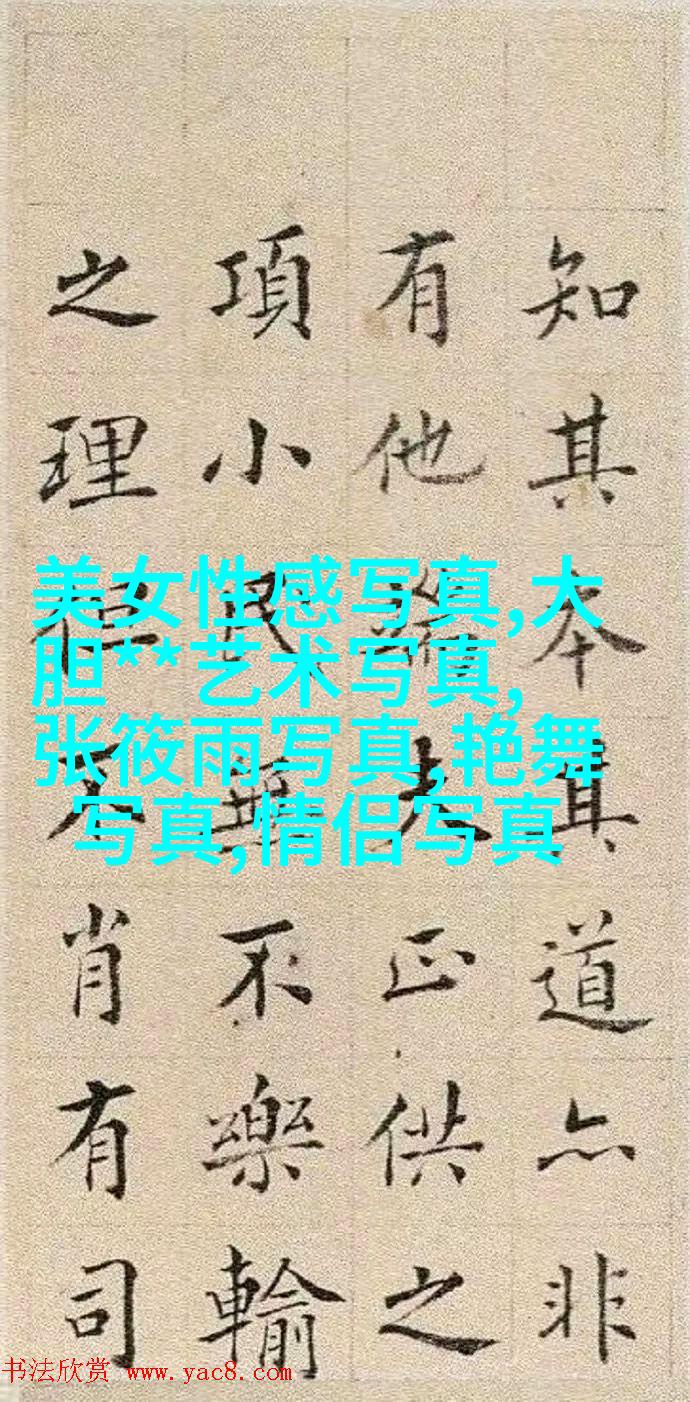 知其本其道亦非
有他夫正供之
項小民無不樂輸
之理但不肖有司
美女性感写真,大
胆**艺术写真,
张筱雨写真,艳舞
写真,情侣写真
书法欣赏 www.yac8.com